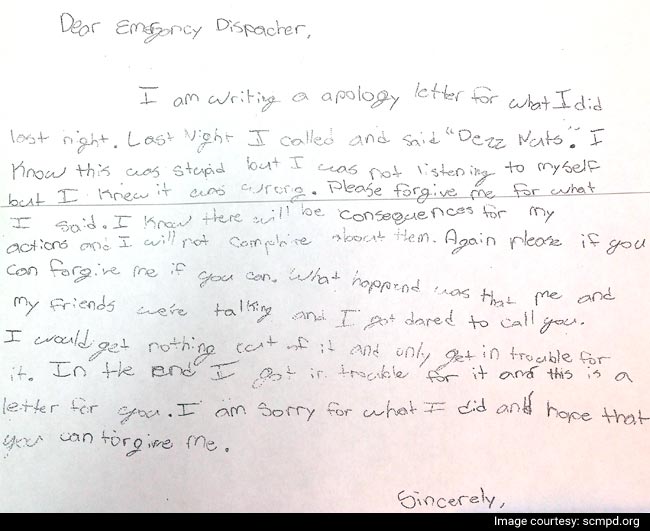 Dear Emergency Dispacher,
I am writing a apology letter for what I did
last night. Last Night I called and said "Dezz Nuts". I
Know this was stupid but I was not listening to myself
but I knew it was wrong. Please forgive me for what
I said. I know there will be consequences for my
actions and I will not complaine about them. Again please if you
can forgive me if you can. What happend was that me and
my friends were talking and I got dared to call you.
I would get nothing out of it and only get in trouble for
it. In the end I got in trouble for it and this is a
letter for you. I am sorry for what I did and hope that
you can forgive me.
Sincerely,
Image courtesy: scmpd.org